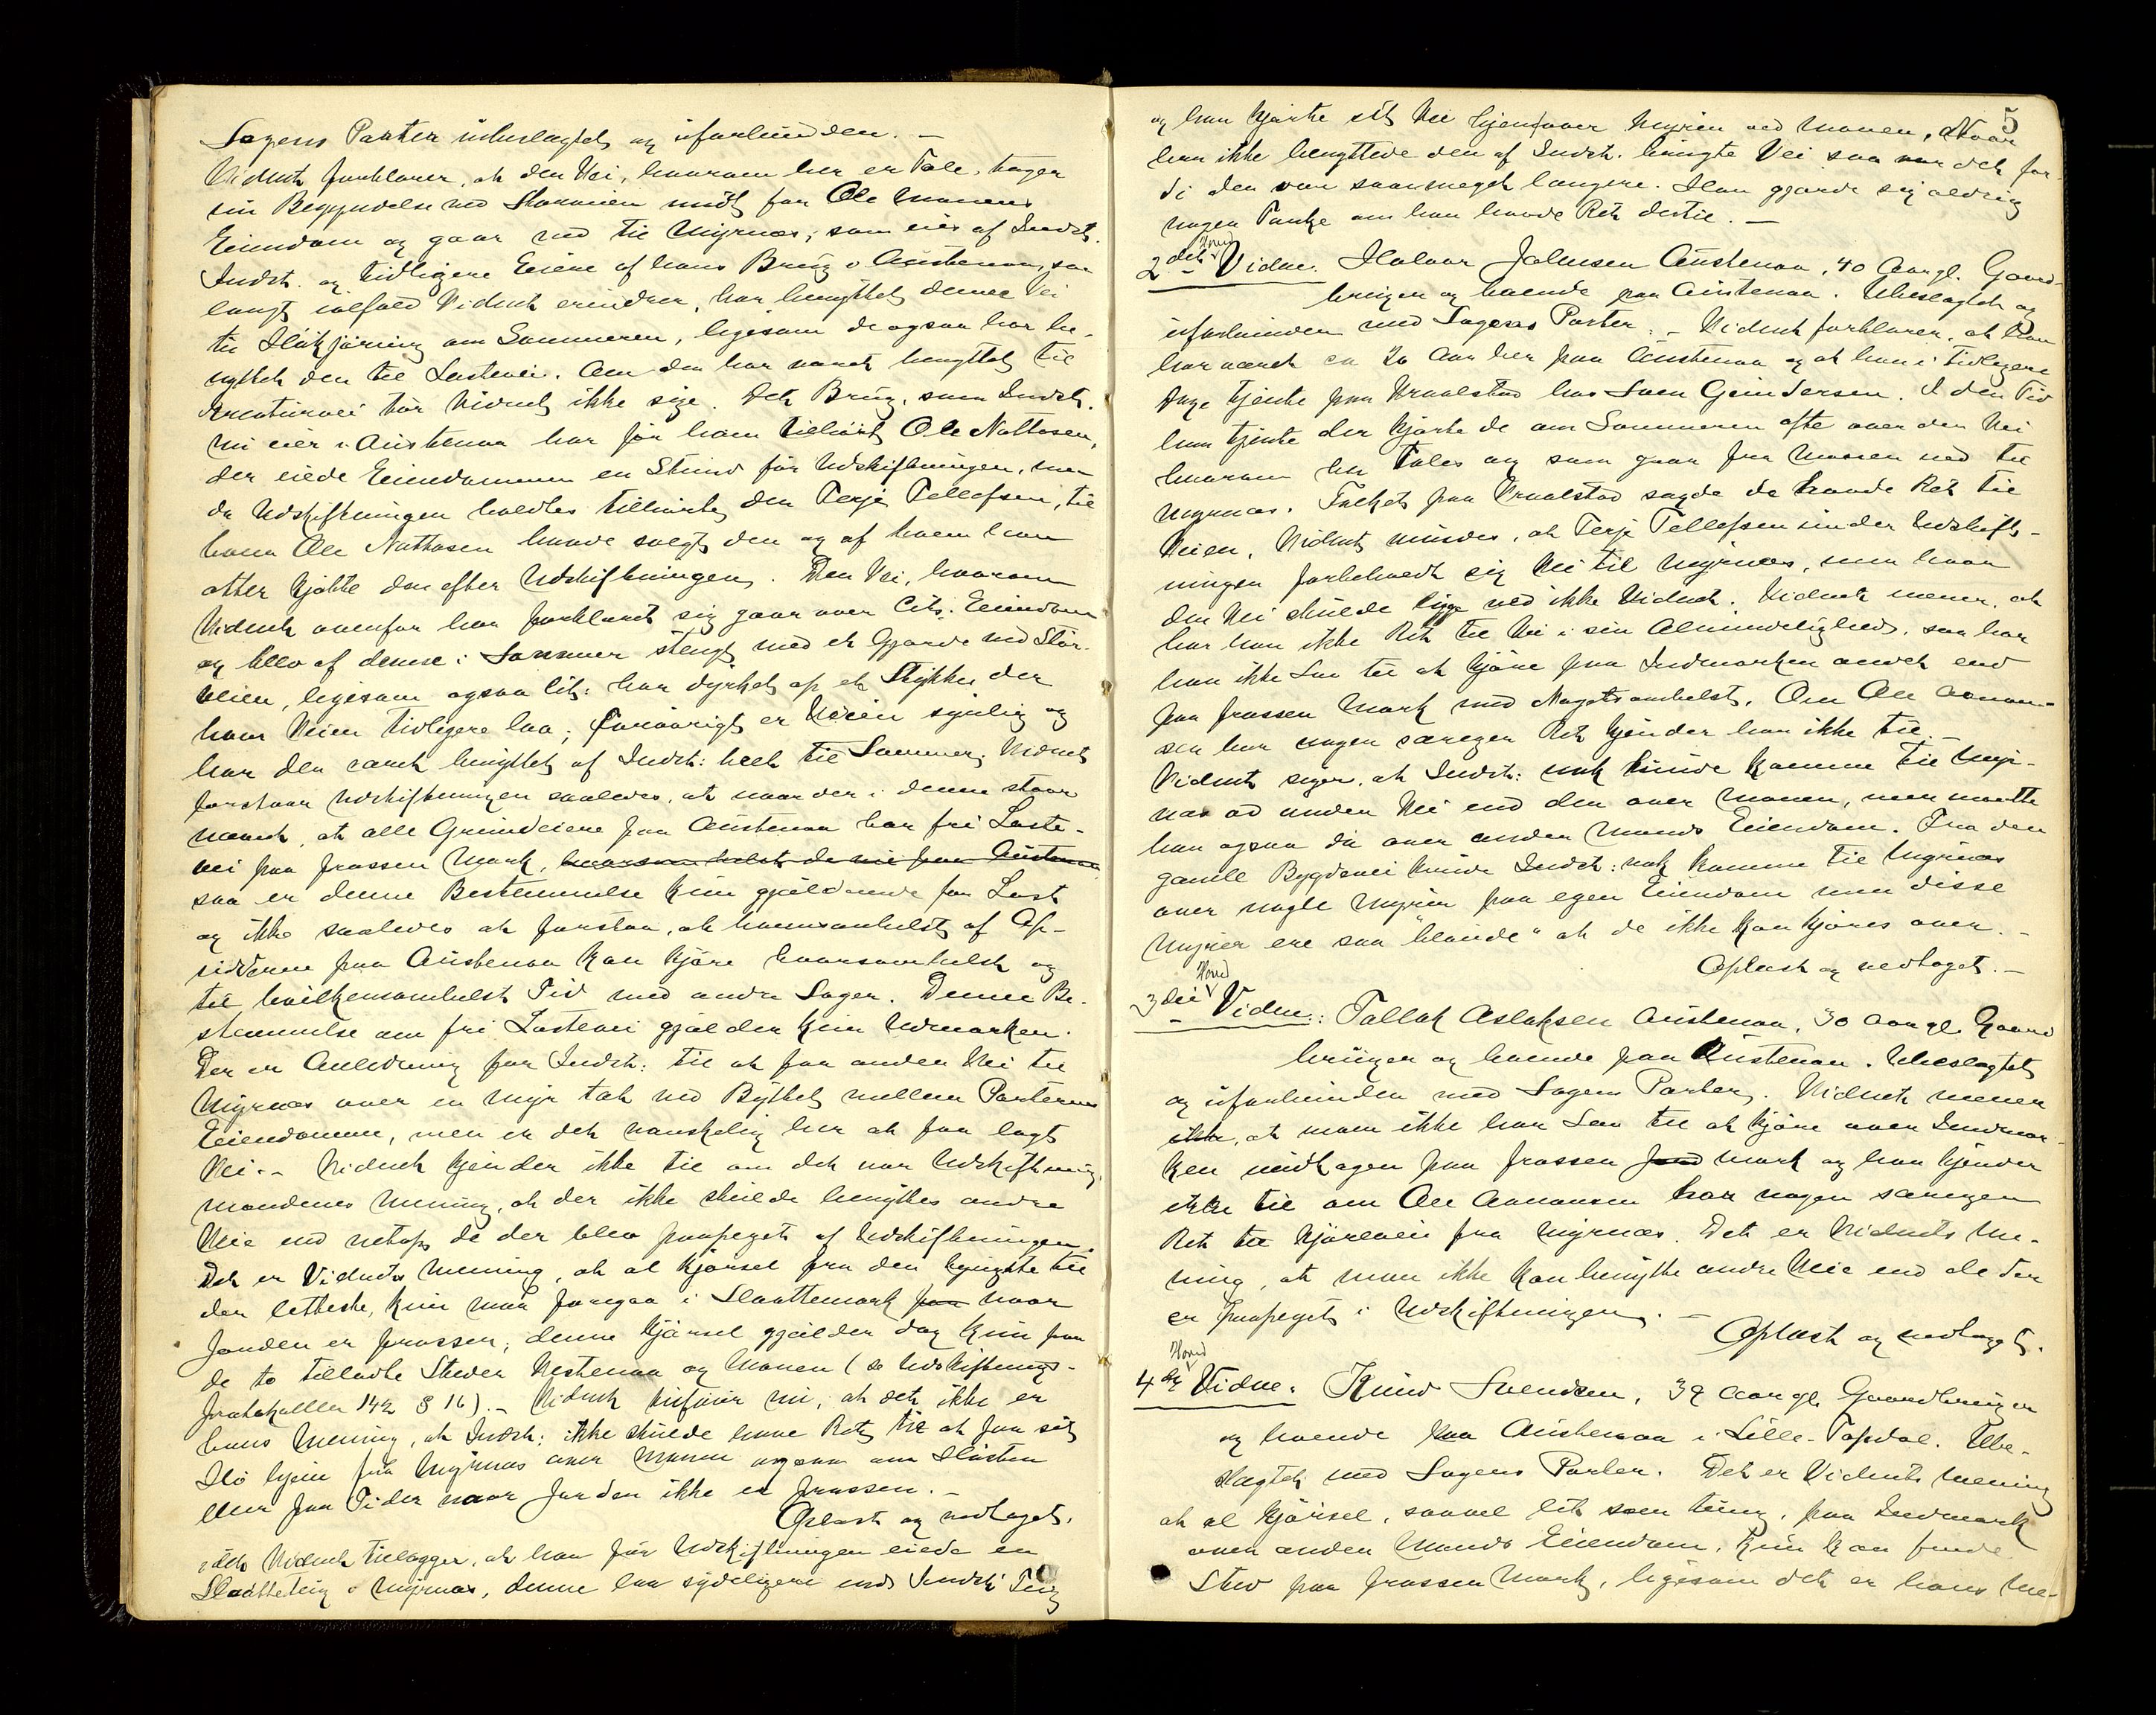 Sagens Parter ubeslægtet og uforbunden. –
Vidnet forklarer, at den Vei, hvorom her er Tale, tager
sin Begyndelse ved Storveien midt for Ole Monens
Eiendom og gaar ned til Myrnes, som eies af Indst.
Indst. og tidligere Eiere af hans Brug i Austenaa, saa
langt ialfald Vidnet erindrer, har benyttet denne Vei
til Høikjøring om Sommeren, ligesom de ogsaa har be-
nyttet den til Lastevei. Om den har været benyttet til
Kreaturvei tør Vidnet ikke sige. Det Brug, som Indst.
nu eier i Austenaa har før ham tilhørt Ole Nottosen,
der eiede Eiendommen en Stund før Udskiftningen, men
da Udskiftningen holdtes tilhørte den Terje Tellefsen, til
hvem Ole Nottosen havde solgt den og af hvem han
atter kjøbte den efter Udskiftningen. Den Vei, hvorom
Vidnet ovenfor har forklaret sig gaar over Cits. Eiendom
og blev af denne i Sommer stengt med et Gjærde ved Stor-
veien, ligesom ogsaa Cit: har dyrket op et Stykke der
hvor Veien tidligere laa; forøvrigt er Veien synlig og
har den været benyttet af Indst: helt til Sommer. Vidnet
forstaar Udskiftningen saaledes, at naar der i denne staar
nævnt, at alle Grundeiere paa Austenaa har fri Laste-
vei paa frossen Mark, hvorsomhelst de nu paa Austenaa
saa er denne Bestemmelse kun gjældende for Last
og ikke saaledes at forstaa, at hvemsomhelst af Op-
sidderne paa Austenaa kan kjøre hvorsomhelst og
til hvilkensomhelst Tid med andre Sager. Denne Be-
stemmelse om fri Lastevei gjælder kun Udmarken.
Der er Anledning for Indst: til at faa anden Vei til
Myrnes over en Myr tæt ved Byttet mellem Parternes
Eiendomme, men er det vanskelig her at faa lagt
Vei. – Vidnet kjender ikke til om det var Udskiftnings-
mændenes Mening, at der ikke skulde benyttes andre
Veie end netop de der blev paapeget af Udskiftningen.
Det er Vidnets Mening, at al Kjørsel fra den tyngste til
den letteste, kun maa foregaa i Slaattemark paa naar
Jorden er frossen; denne Kjørsel gjælder dog kun paa
de to tilladte Steder Vestenaa og Monen (se Udskiftnings-
protokollen 142 § 16). – Vidnet tilføier nu, at det ikke er
hans Mening, at Indst: ikke skulde have Ret til at faa sit
Hø hjem fra Myrnes over Monen ogsaa om Høsten
eller paa Tider naar Jorden ikke er frossen. –
Oplæst og vedtaget.
1ste Vidnet tillægger, at han før Udskiftningen eiede en
Slaatteteig i Myrnes, denne laa sydligere end Indst: Teig
5
og han kjørte sit Hø hjem over Myren ved Monen, Naar
han ikke benyttede den af Indst. brugte Vei saa var det for-
di den var saameget længere. Han gjorde sig aldrig
nogen Tanke om han havde Ret dertil. –
2det Hoved Vidne. Halvor Johnsen Austenaa, 40 Aar gl. Gaard-
bruger og boende paa Austenaa. Ubeslægtet og
uforbunden med Sagens Parter. – Vidnet forklarer, at han
har været ca 20 Aar her paa Austenaa og at han i tidligere
Dage tjente paa Vraalstad hos Sven Gundersen. I den Tid
han tjente der kjørte de om Sommeren ofte over den Vei
hvorom her tales og som gaar fra Monen ned til
Myrnes. Folket paa Vraalstad sagde de havde Ret til
Veien. Vidnet mindes, at Terje Tellefsen under Udskift-
ningen forbeholdt sig Vei til Myrnes, men hvor
den Vei skulde ligge ved ikke Vidnet. Vidnet mener, at
har han ikke Ret til Vei i sin Almindelighed, saa har
han ikke Lov til at kjøre paa Indmarken andet end
paa frossen Mark med Nogetsomhelst. Om Ole Aanon-
sen har nogen særegen Ret kjender han ikke til. –
Vidnet siger, at Indst: nok kunde komme til Myr-
nes ad anden Vei end den over Monen, men maatte
han ogsaa da over anden Mands Eiendom. Fra den
gamle Bygdevei kunde Indst: nok komme til Myrnes
over nogle Myrer paa egen Eiendom men disse
Myrer ere saa "blaude" at de ikke kan kjøres over. –
Oplæst og vedtaget. –
3die Hoved Vidne: Tallak Aslaksen Austenaa, 30 Aar gl. Gaard
bruger og boende paa Austenaa. Ubeslægtet
og uforbunden med Sagens Parter. Vidnet mener
ikke, at man ikke har Lov til at kjøre over Indmar-
ken undtagen paa frossen Jord Mark og han kjender
ikke til om Ole Aanonsen har nogen særegen
Ret til Kjørevei fra Myrnes. Det er Vidnets Me-
ning, at man ikke kan benytte andre Veie end de der
er paapeget i Udskiftningen. –
Oplæst og vedtaget.
4de Hoved Vidne. Knud Svendsen, 39 Aar gl. Gaardbruger
og boende paa Austenaa i Lille-Topdal. Ube-
slægtet med Sagens Parter. Det er Vidnets Mening
at al Kjørsel, saavel let som tung, paa Indmark
over anden Mands Eiendom, kun kan finde
Sted paa frossen Mark, ligesom det er hans Me-